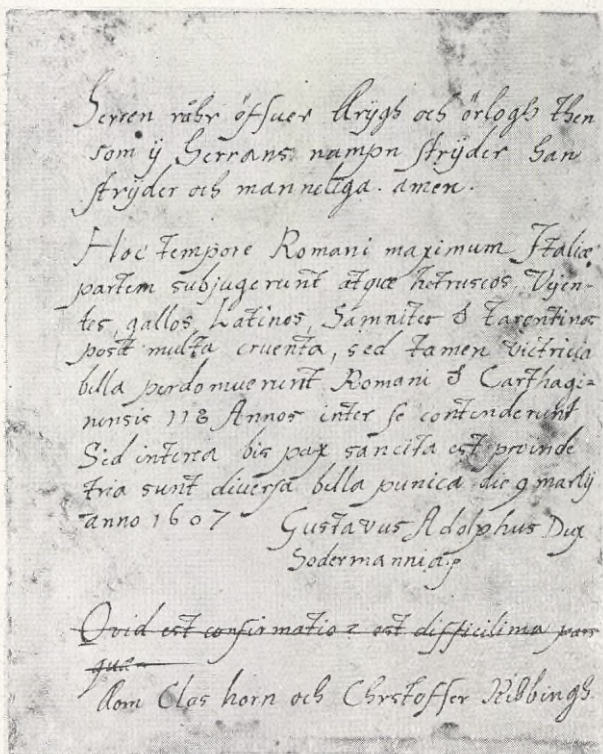 Herren råhr öffuer krÿgh och örlogh then
som ÿ Herrans nampn strÿder han
strÿder och manneliga. amen.
Hoc tempore Romani maximum Italiæ
partem subjugerunt atque hetruscos, Vÿen-
tes, gallos, Latinos, Samnites & tarentinos
post multa cruenta, sed tamen victricia
bella perdomuerunt Romani & Carthagi-
nensis 118 Annos inter se contenderunt
Sed interea bis pax sancita est proinde
tria sunt diversa bella punica die 9 martÿ
anno 1607 Gustavus Adolphus Dux
Sodermanniæ
Qvid est confirmatio est difficilima pars
quæ
kom Clas horn och Chrstoffer Ribbingh